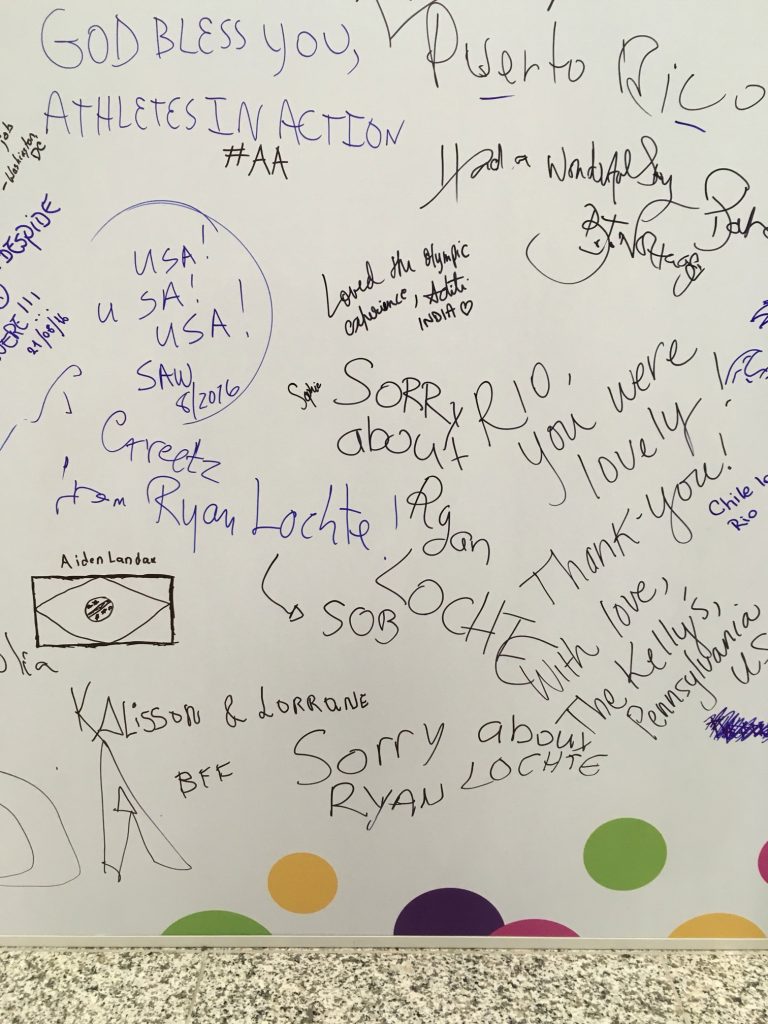 GOD BLESS YOU,
ATHLETES IN ACTION
#AA
Puerto Rico
job
-Washington
DC
Had a Wonderful
DESPIDE
!!!
21/08/16
USA!
USA!
USA!
SAW
8/2016
Loved the Olympic
experience, Aditi
INDIA ♡
Sophie
SORRY
about
Ryan
LOCHTE
RIO,
you were
lovely!
Thank-you!
With love,
The Kelly's,
Pennsylvania
US
Chile
Rio
Greetz
from Ryan Lochte!
→ SOB
Aiden Landau
KALISSON & LORRANE
BFF
Sorry about
RYAN LOCHTE